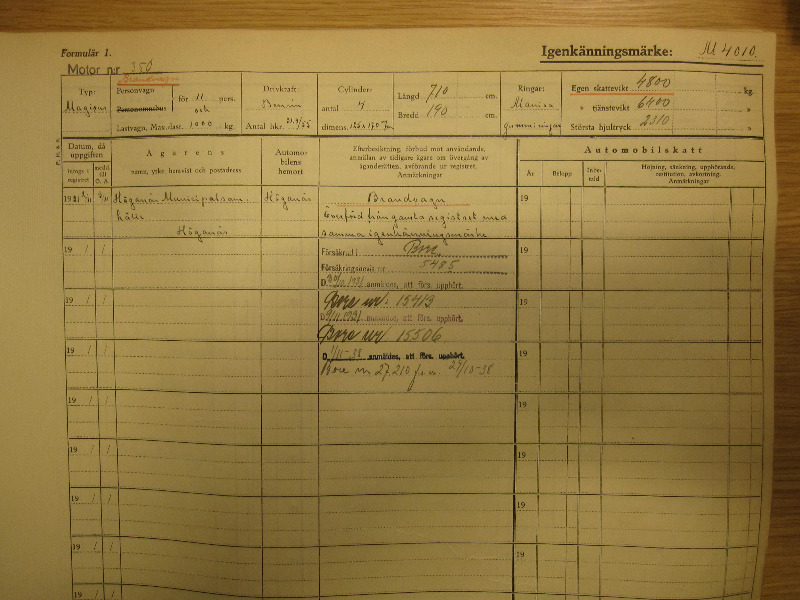 Formulär 1.
Igenkänningsmärke: M 4010
Motor n:r 350
Brandvagn
Typ:
Magirus
Personvagn
Personomnibus
för 11 pers.
och
Lastvagn, Max.dass. 1000 kg.
Drivkraft:
Bensin
Antal hkr.
Cylinder:
antal 4
dimens.
Längd 710 cm.
Bredd 190 cm.
Ringar:
Massiva
gummiringar
Egen skattevikt 4800 kg.
" tjänstevikt 6400 "
Största hjultryck 2310 "
Datum, då
uppgiften
Ägarens
namn, yrke, hemvist och postadress
Automo-
bilens
hemort
Efterbesiktning, förbud mot användande,
anmälan av tidigare ägare om övergång av
äganderätten, avförande ur registret.
Anmärkningar
Automobilskatt
År
Belopp
Höjning, sänkning, upphörande,
restitution, avkortning.
Anmärkningar
Höganäs Municipalsam-
hälle
Höganäs
Höganäs
Brandvagn
Överförd från gamla registret med
samma igenkänningsmärke
19
19 / /
Försäkrad i Bore
Försäkringsbevis nr 5485
anmäldes, att förs. upphört.
19
19 / /
Bore nr: 15413
anmäldes, att förs. upphört.
Bore nr 15506
19
19 / /
D. 1/11-38 anmäldes, att förs. upphört.
Bore nr 27.210 fr.o.m. 27/10-38
19
19 / /
19
19 / /
19
19 / /
19
19 / /
19
19 / /